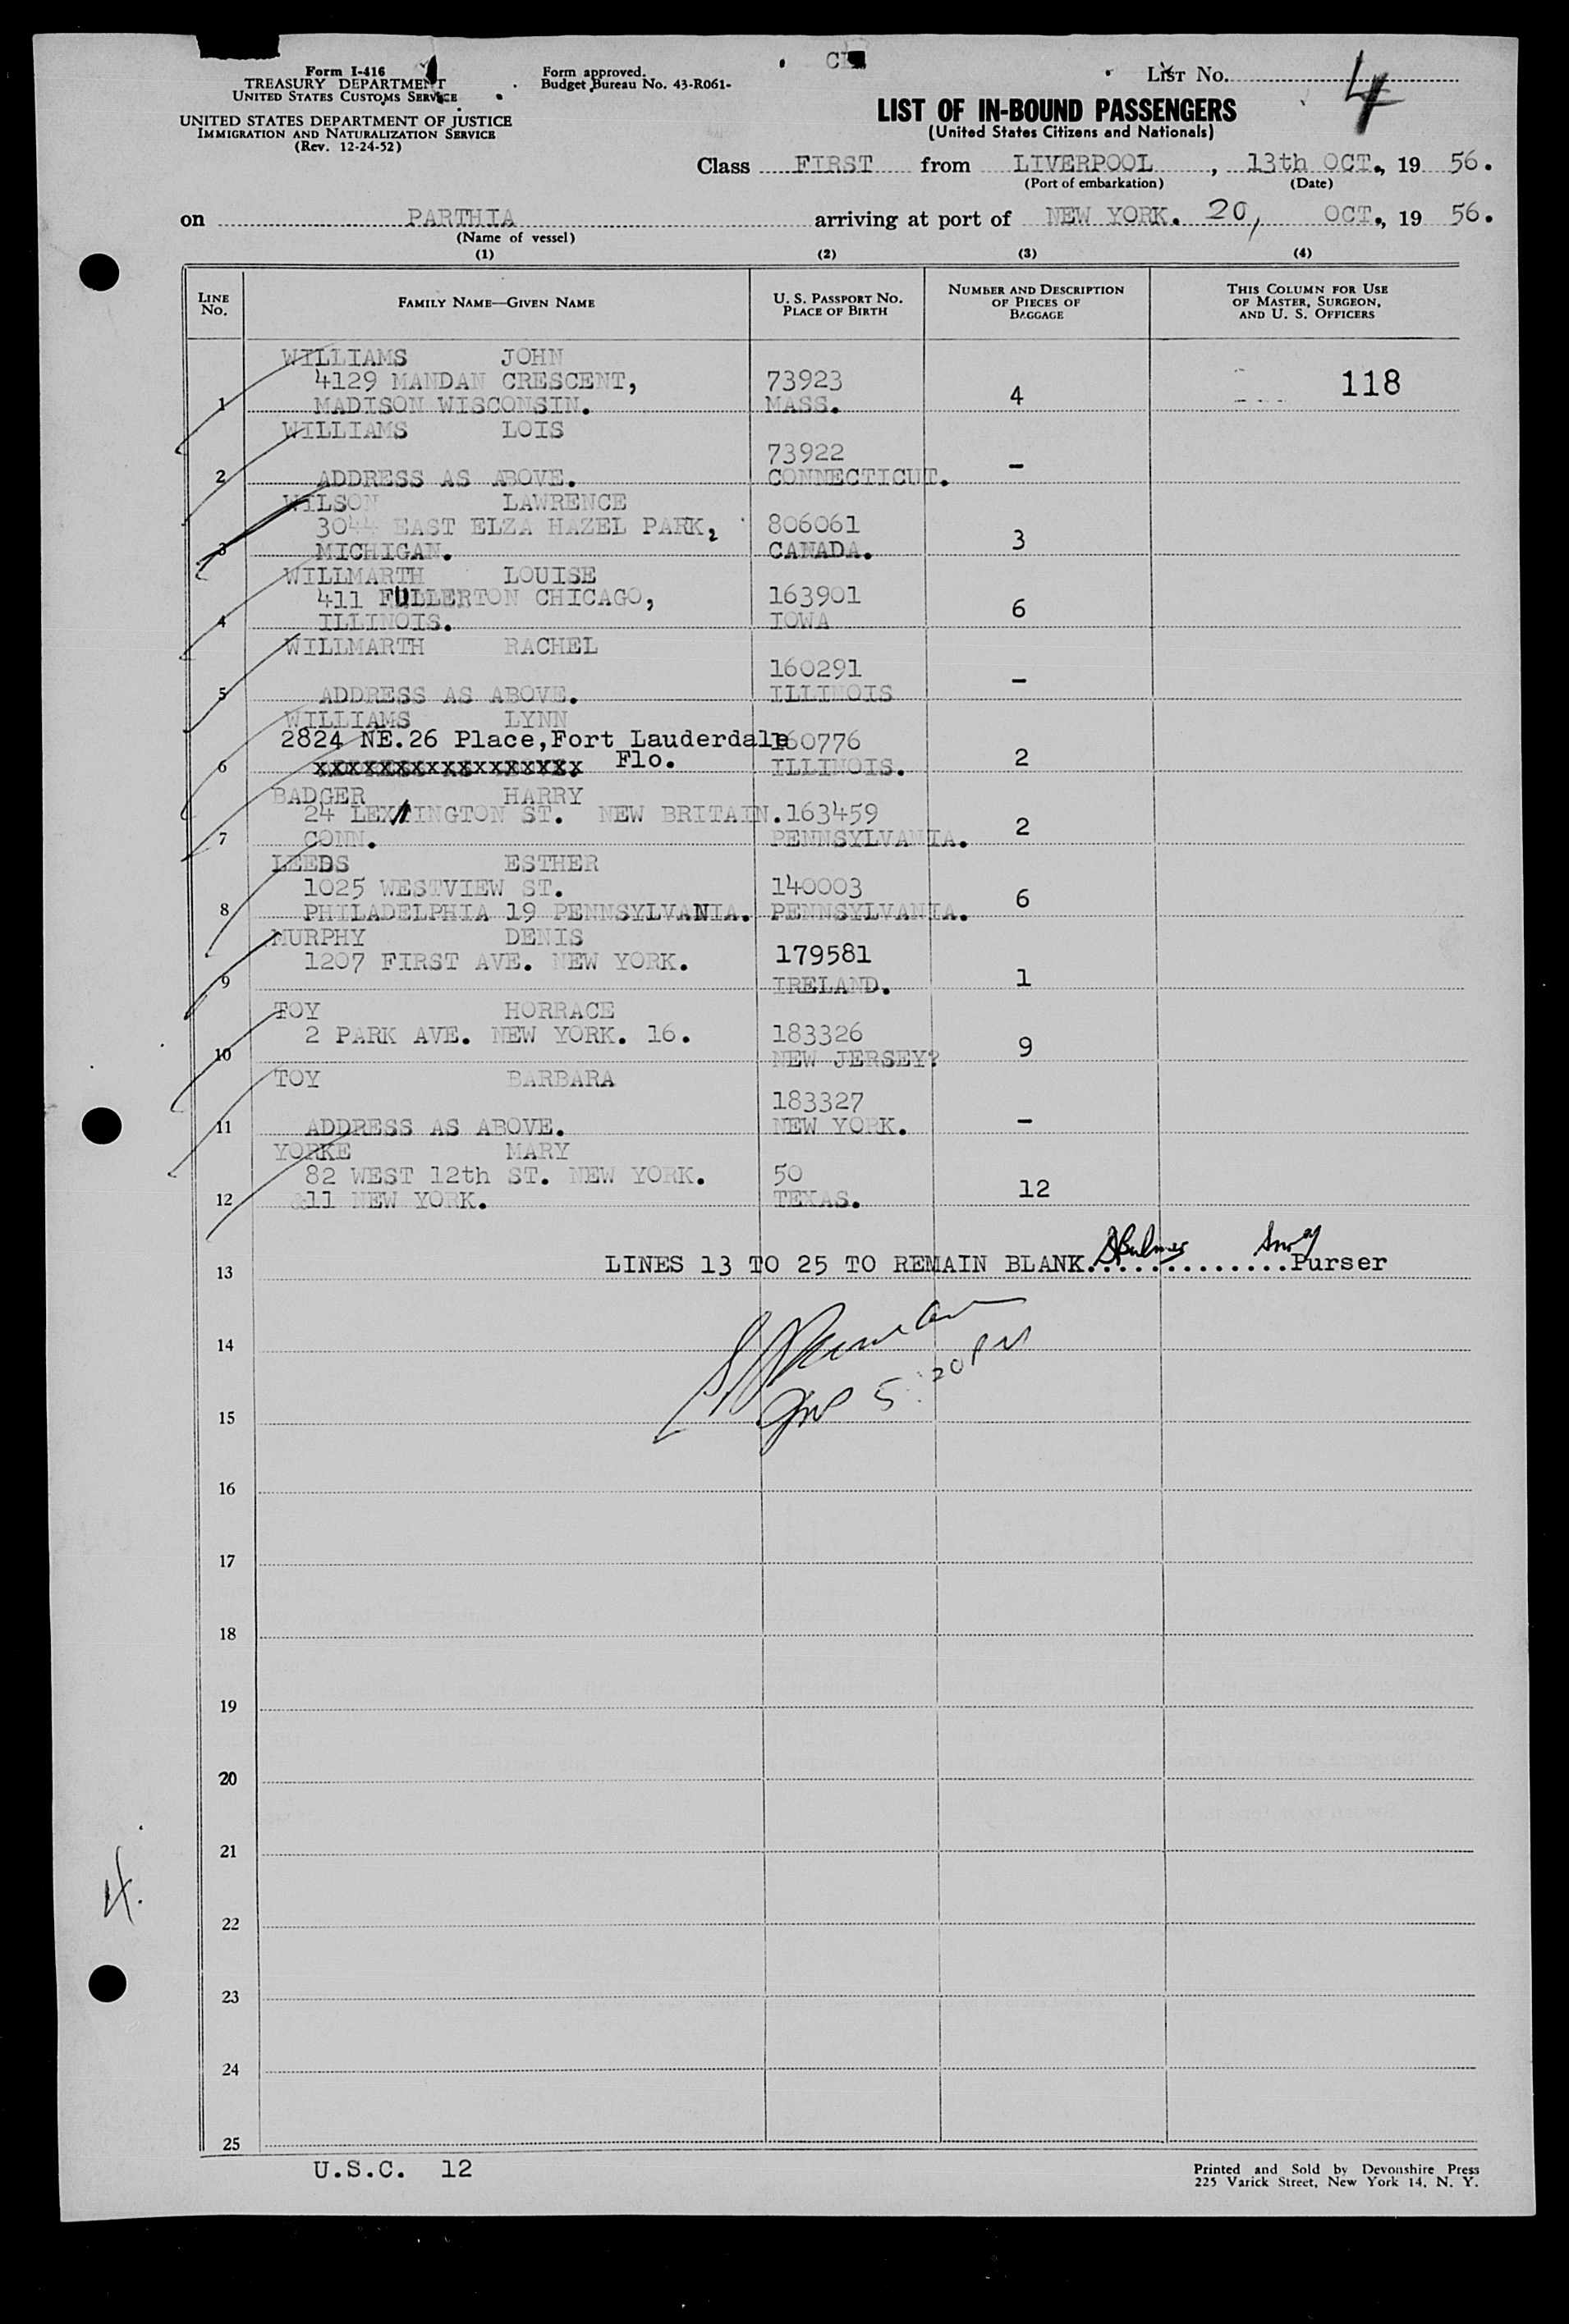 Form I-416
TREASURY DEPARTMENT
UNITED STATES CUSTOMS SERVICE
UNITED STATES DEPARTMENT OF JUSTICE
IMMIGRATION AND NATURALIZATION SERVICE
(Rev. 12-24-52)
Form approved.
Budget Bureau No. 43-R061-
LIST No. 4
LIST OF IN-BOUND PASSENGERS
(United States Citizens and Nationals)
Class FIRST from LIVERPOOL, 13th OCT., 19 56.
(Port of embarkation) (Date)
on PARTHIA arriving at port of NEW YORK. 20, OCT., 19 56.
(Name of vessel)
(1) (2) (3) (4)
LINE No. FAMILY NAME—GIVEN NAME U. S. PASSPORT No. PLACE OF BIRTH NUMBER AND DESCRIPTION OF PIECES OF BAGGAGE THIS COLUMN FOR USE OF MASTER, SURGEON, AND U. S. OFFICERS
WILLIAMS JOHN
4129 MANDAN CRESCENT, 73923 118
1 MADISON WISCONSIN. MASS. 4
WILLIAMS LOIS
73922
2 ADDRESS AS ABOVE. CONNECTICUT. –
WILSON LAWRENCE
3044 EAST ELZA HAZEL PARK, 806061
3 MICHIGAN. CANADA. 3
WILLMARTH LOUISE
411 FULLERTON CHICAGO, 163901
4 ILLINOIS. IOWA 6
WILLMARTH RACHEL
160291
5 ADDRESS AS ABOVE. ILLINOIS –
WILLIAMS LYNN
2824 NE.26 Place,Fort Lauderdale 160776
6 xxxxxxxxxxxxxxxxx Flo. ILLINOIS. 2
BADGER HARRY
24 LEXINGTON ST. NEW BRITAIN. 163459
7 CONN. PENNSYLVANIA. 2
LEEDS ESTHER
1025 WESTVIEW ST. 140003
8 PHILADELPHIA 19 PENNSYLVANIA. PENNSYLVANIA. 6
MURPHY DENIS
1207 FIRST AVE. NEW YORK. 179581
9 IRELAND. 1
TOY HORRACE
2 PARK AVE. NEW YORK. 16. 183326
10 NEW JERSEY? 9
TOY BARBARA
183327
11 ADDRESS AS ABOVE. NEW YORK. –
YORKE MARY
82 WEST 12th ST. NEW YORK. 50
12 11 NEW YORK. TEXAS. 12
13 LINES 13 TO 25 TO REMAIN BLANK.............Purser
14
5:20 PM
15
16
17
18
19
20
21
4.
22
23
24
25
U.S.C. 12
Printed and Sold by Devonshire Press
225 Varick Street, New York 14, N. Y.